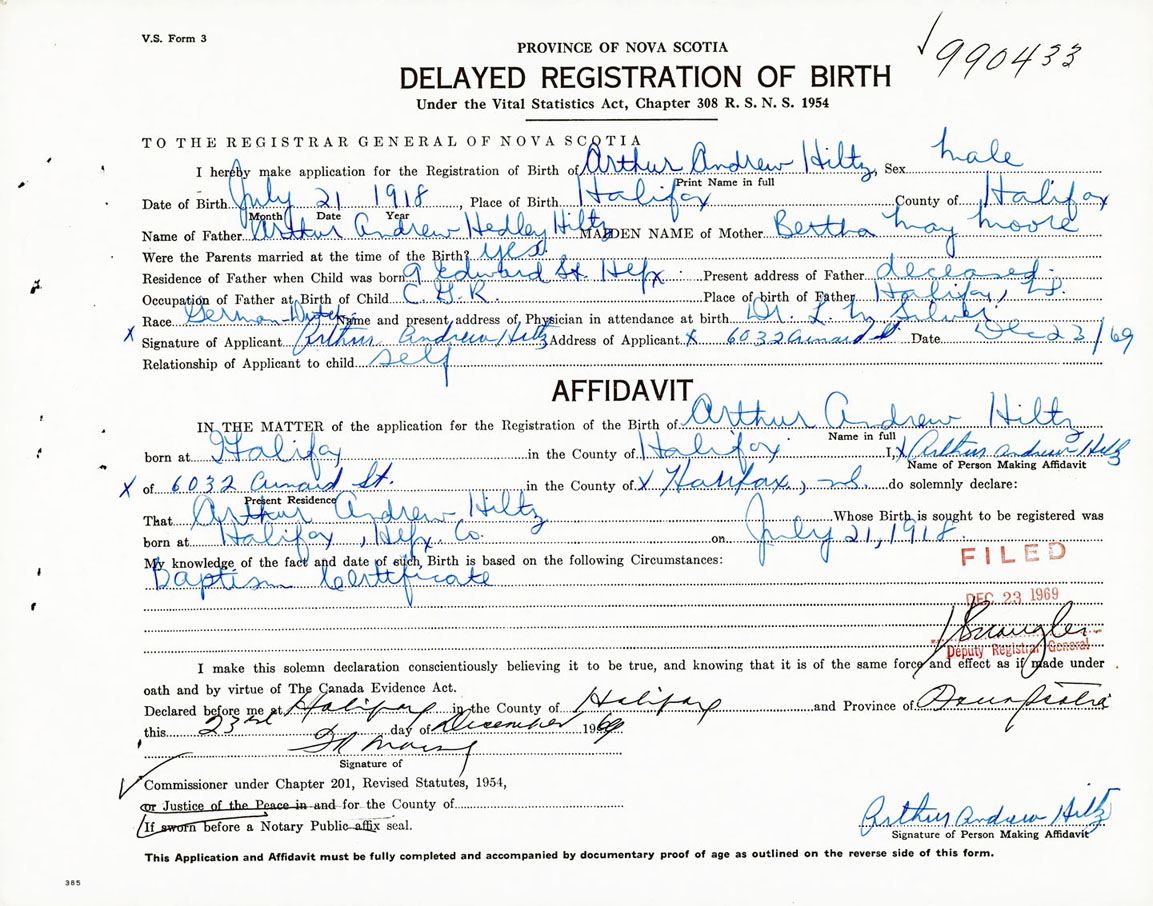 V.S. Form 3
PROVINCE OF NOVA SCOTIA
990433
DELAYED REGISTRATION OF BIRTH
Under the Vital Statistics Act, Chapter 308 R. S. N. S. 1954
TO THE REGISTRAR GENERAL OF NOVA SCOTIA
I hereby make application for the Registration of Birth of Arthur Andrew Hiltz, Sex male
Print Name in full
Date of Birth July 21 1918, Place of Birth Halifax County of Halifax
Month Date Year
Name of Father Arthur Andrew Hedley Hiltz MAIDEN NAME of Mother Bertha May Moore
Were the Parents married at the time of the Birth? yes
Residence of Father when Child was born 9 Edward St. Hfx. Present address of Father deceased.
Occupation of Father at Birth of Child C. G. R. Place of birth of Father Halifax,
Race German-Dutch Name and present address of Physician in attendance at birth Dr. L. M. Silver
X Signature of Applicant Arthur Andrew Hiltz Address of Applicant X 6032 Cunard St Date Dec 23/69
Relationship of Applicant to child self
AFFIDAVIT
IN THE MATTER of the application for the Registration of the Birth of Arthur Andrew Hiltz
Name in full
born at Halifax in the County of Halifax I, X Arthur Andrew Hiltz
Name of Person Making Affidavit
X of 6032 Cunard St. in the County of X Halifax, N.S. do solemnly declare:
Present Residence
That Arthur Andrew Hiltz Whose Birth is sought to be registered was
born at Halifax, Hfx. Co. on July 21, 1918.
My knowledge of the fact and date of such Birth is based on the following Circumstances:
FILED
Baptism Certificate
DEC 23 1969
Deputy Registrar General
I make this solemn declaration conscientiously believing it to be true, and knowing that it is of the same force and effect as if made under
oath and by virtue of The Canada Evidence Act.
Declared before me at Halifax in the County of Halifax and Province of Nova Scotia
this 23rd day of December 1969
Signature of
Commissioner under Chapter 201, Revised Statutes, 1954,
or Justice of the Peace in and for the County of
If sworn before a Notary Public affix seal.
Arthur Andrew Hiltz
Signature of Person Making Affidavit
This Application and Affidavit must be fully completed and accompanied by documentary proof of age as outlined on the reverse side of this form.
385